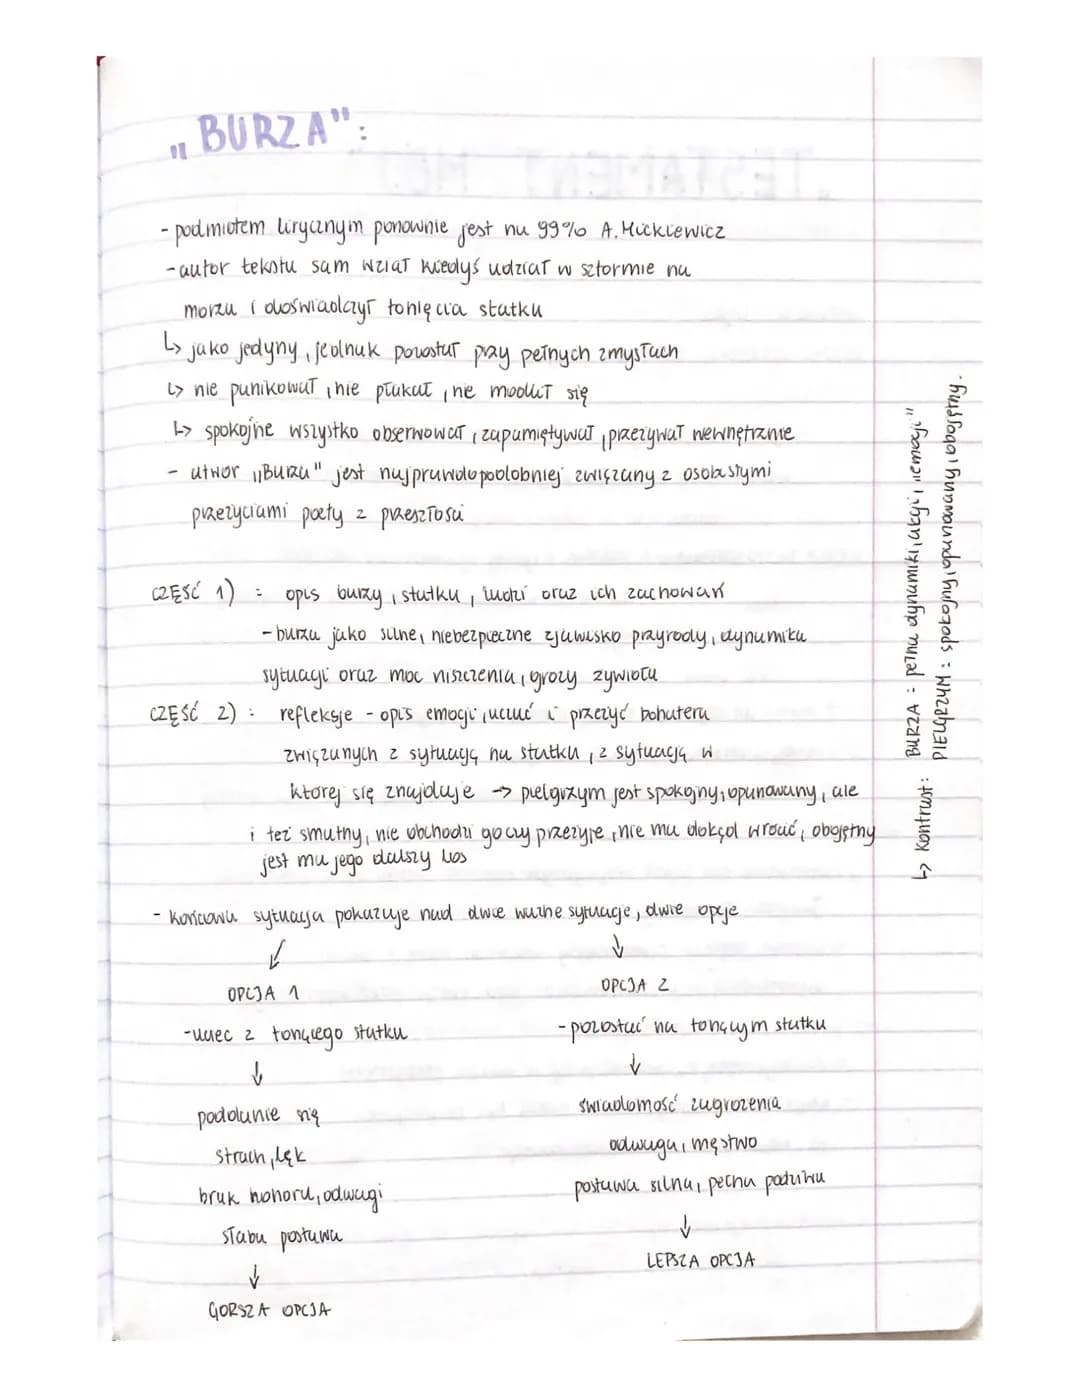 „BURZA":
- podmiotem lirycznym ponownie jest na 99% A. Mickiewicz
- autor tekstu sam wziął kiedyś udział w sztormie na
morzu i doświadczył tonięcia statku
↳ jako jedyny, jednak pozostał przy pełnych zmysłach
↳ nie panikował, nie płakał, nie modlił się
↳ spokojnie wszystko obserwował, zapamiętywał, przeżywał wewnętrznie
- utwór „Burza" jest najprawdopodobniej związany z osobistymi
przeżyciami poety z przeszłości
CZĘŚĆ 1) : opis burzy, statku, ludzi oraz ich zachowań
- burza jako silne, niebezpieczne zjawisko przyrody, dynamika
sytuacji oraz moc niszczenia, grozy żywiołu
CZĘŚĆ 2) : refleksje - opis emocji, uczuć i przeżyć bohatera
związanych z sytuacją na statku, z sytuacją w
której się znajduje → pielgrzym jest spokojny, opanowany, ale
i też smutny, nie obchodzi go czy przeżyje, nie ma dokąd wrócić, obojętny
jest mu jego dalszy los
- końcowa sytuacja pokazuje nad dwie ważne sytuacje, dwie opcje
↙ ↓
OPCJA 1 OPCJA 2
- uciec z tonącego statku - pozostać na tonącym statku
↓ ↓
poddanie się świadomość zagrożenia
strach, lęk odwaga, męstwo
brak honoru, odwagi postawa silna, pełna podziwu
słaba postawa ↓
↓ LEPSZA OPCJA
GORSZA OPCJA
↳ Kontrast: BURZA : pełna dynamiki, akcji, „emocji"
PIELGRZYM : spokojny, opanowany, obojętny.